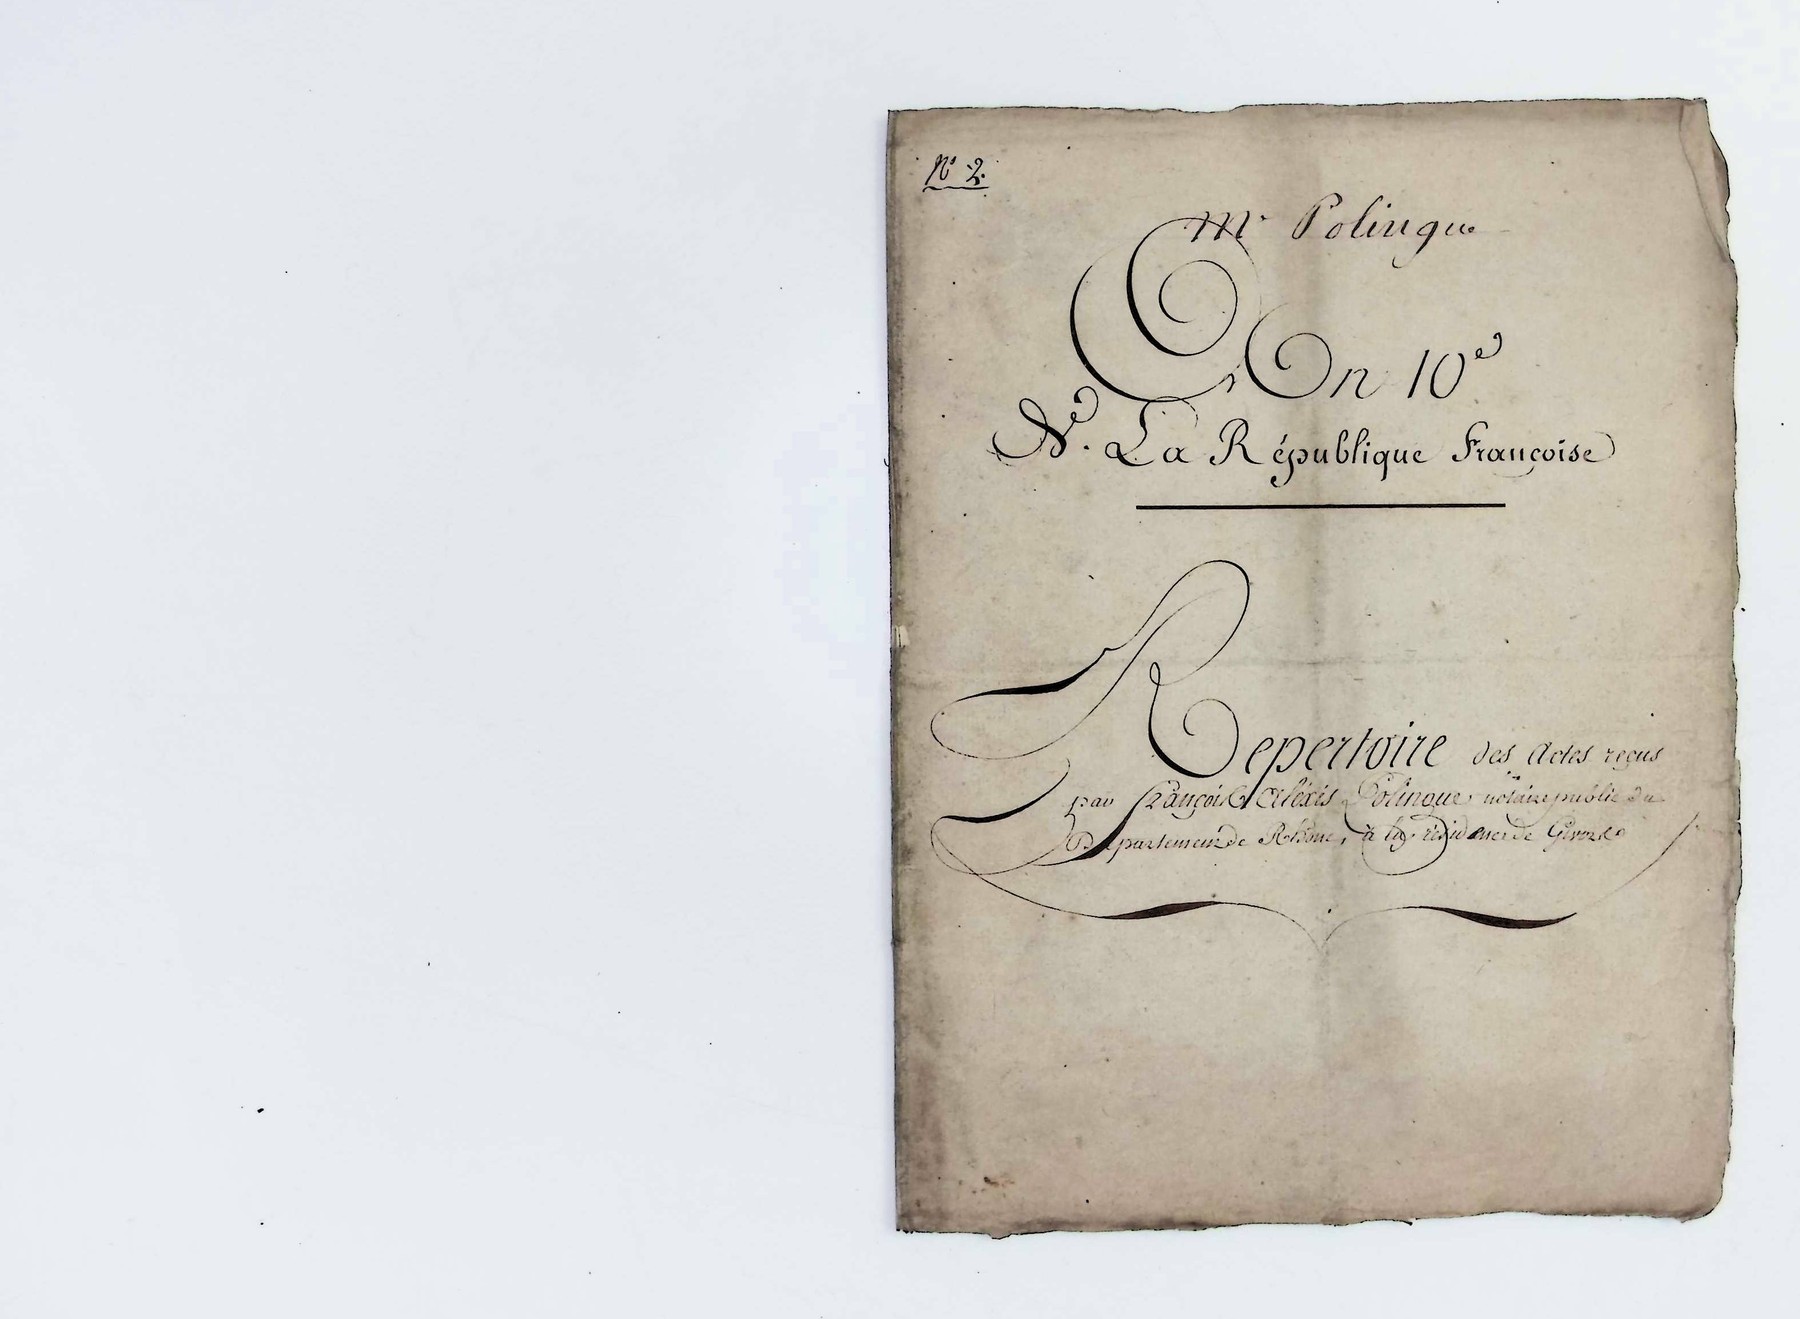 N° 2.
Mr Polingue
An 10e
De. La République Françoise
Repertoire des Actes reçus
par françois Alexis Polingue notaire public du
Département de Rhône, à la résidence de Givors